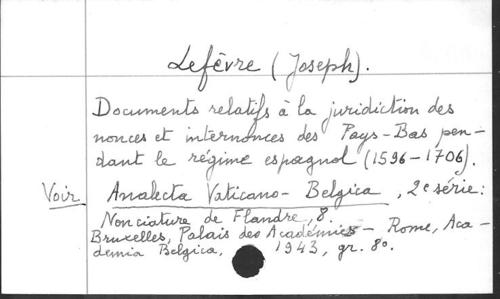 Lefèvre (Joseph).
Documents relatifs à la juridiction des
nonces et internonces des Pays-Bas pen-
dant le régime espagnol (1596-1706).
Voir Analecta Vaticano-Belgica, 2e série:
Nonciature de Flandre, 8.
Bruxelles, Palais des Académies - Rome, Aca-
demia Belgica, 1943, gr. 8o.